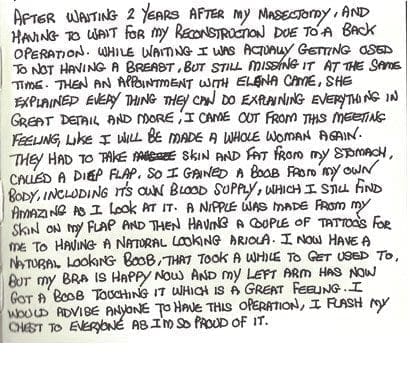 AFTER WAITING 2 YEARS AFTER MY MASECTOMY, AND
HAVING TO WAIT FOR MY RECONSTRUCTION DUE TO A BACK
OPERATION. WHILE WAITING I WAS ACTUALLY GETTING USED
TO NOT HAVING A BREAST, BUT STILL MISSING IT AT THE SAME
TIME. THEN AN APPOINTMENT WITH ELENA CAME, SHE
EXPLAINED EVERY THING THEY CAN DO EXPLAINING EVERYTHING IN
GREAT DETAIL AND MORE, I CAME OUT FROM THIS MEETING
FEELING, LIKE I WILL BE MADE A WHOLE WOMAN AGAIN.
THEY HAD TO TAKE SKIN AND FAT FROM MY STOMACH,
CALLED A DIEP FLAP, SO I GAINED A BOOB FROM MY OWN
BODY, INCLUDING IT'S OWN BLOOD SUPPLY, WHICH I STILL FIND
AMAZING AS I LOOK AT IT. A NIPPLE WAS MADE FROM MY
SKIN ON MY FLAP AND THEN HAVING A COUPLE OF TATTOOS FOR
ME TO HAVING A NATURAL LOOKING ARIOLA. I NOW HAVE A
NATURAL LOOKING BOOB, THAT TOOK A WHILE TO GET USED TO,
BUT MY BRA IS HAPPY NOW AND MY LEFT ARM HAS NOW
GOT A BOOB TOUCHING IT WHICH IS A GREAT FEELING. I
WOULD ADVISE ANYONE TO HAVE THIS OPERATION, I FLASH MY
CHEST TO EVERYONE AS I'M SO PROUD OF IT.